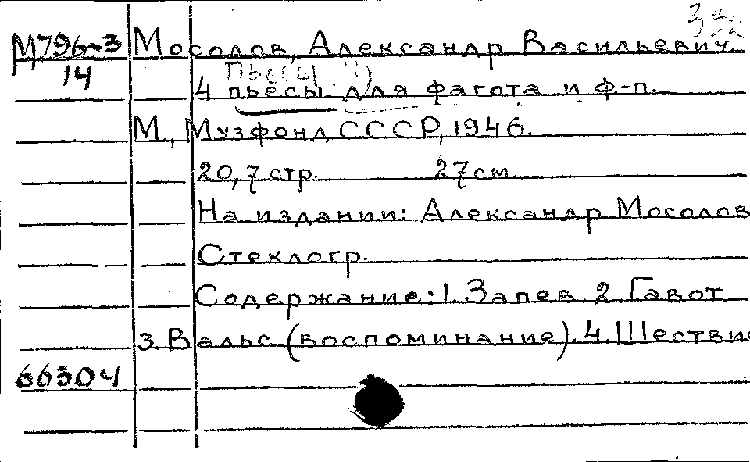 М796-3 Мосолов, Александр Васильевич.
14
Пьесы
4 пьесы для фагота и ф-п.
М., Музфонд СССР, 1946.
20, 7 стр. 27 см
На издании: Александр Мосолов
Стеклогр.
Содержание: 1. Запев 2. Гавот
3. Вальс (воспоминание). 4. Шествие
66304